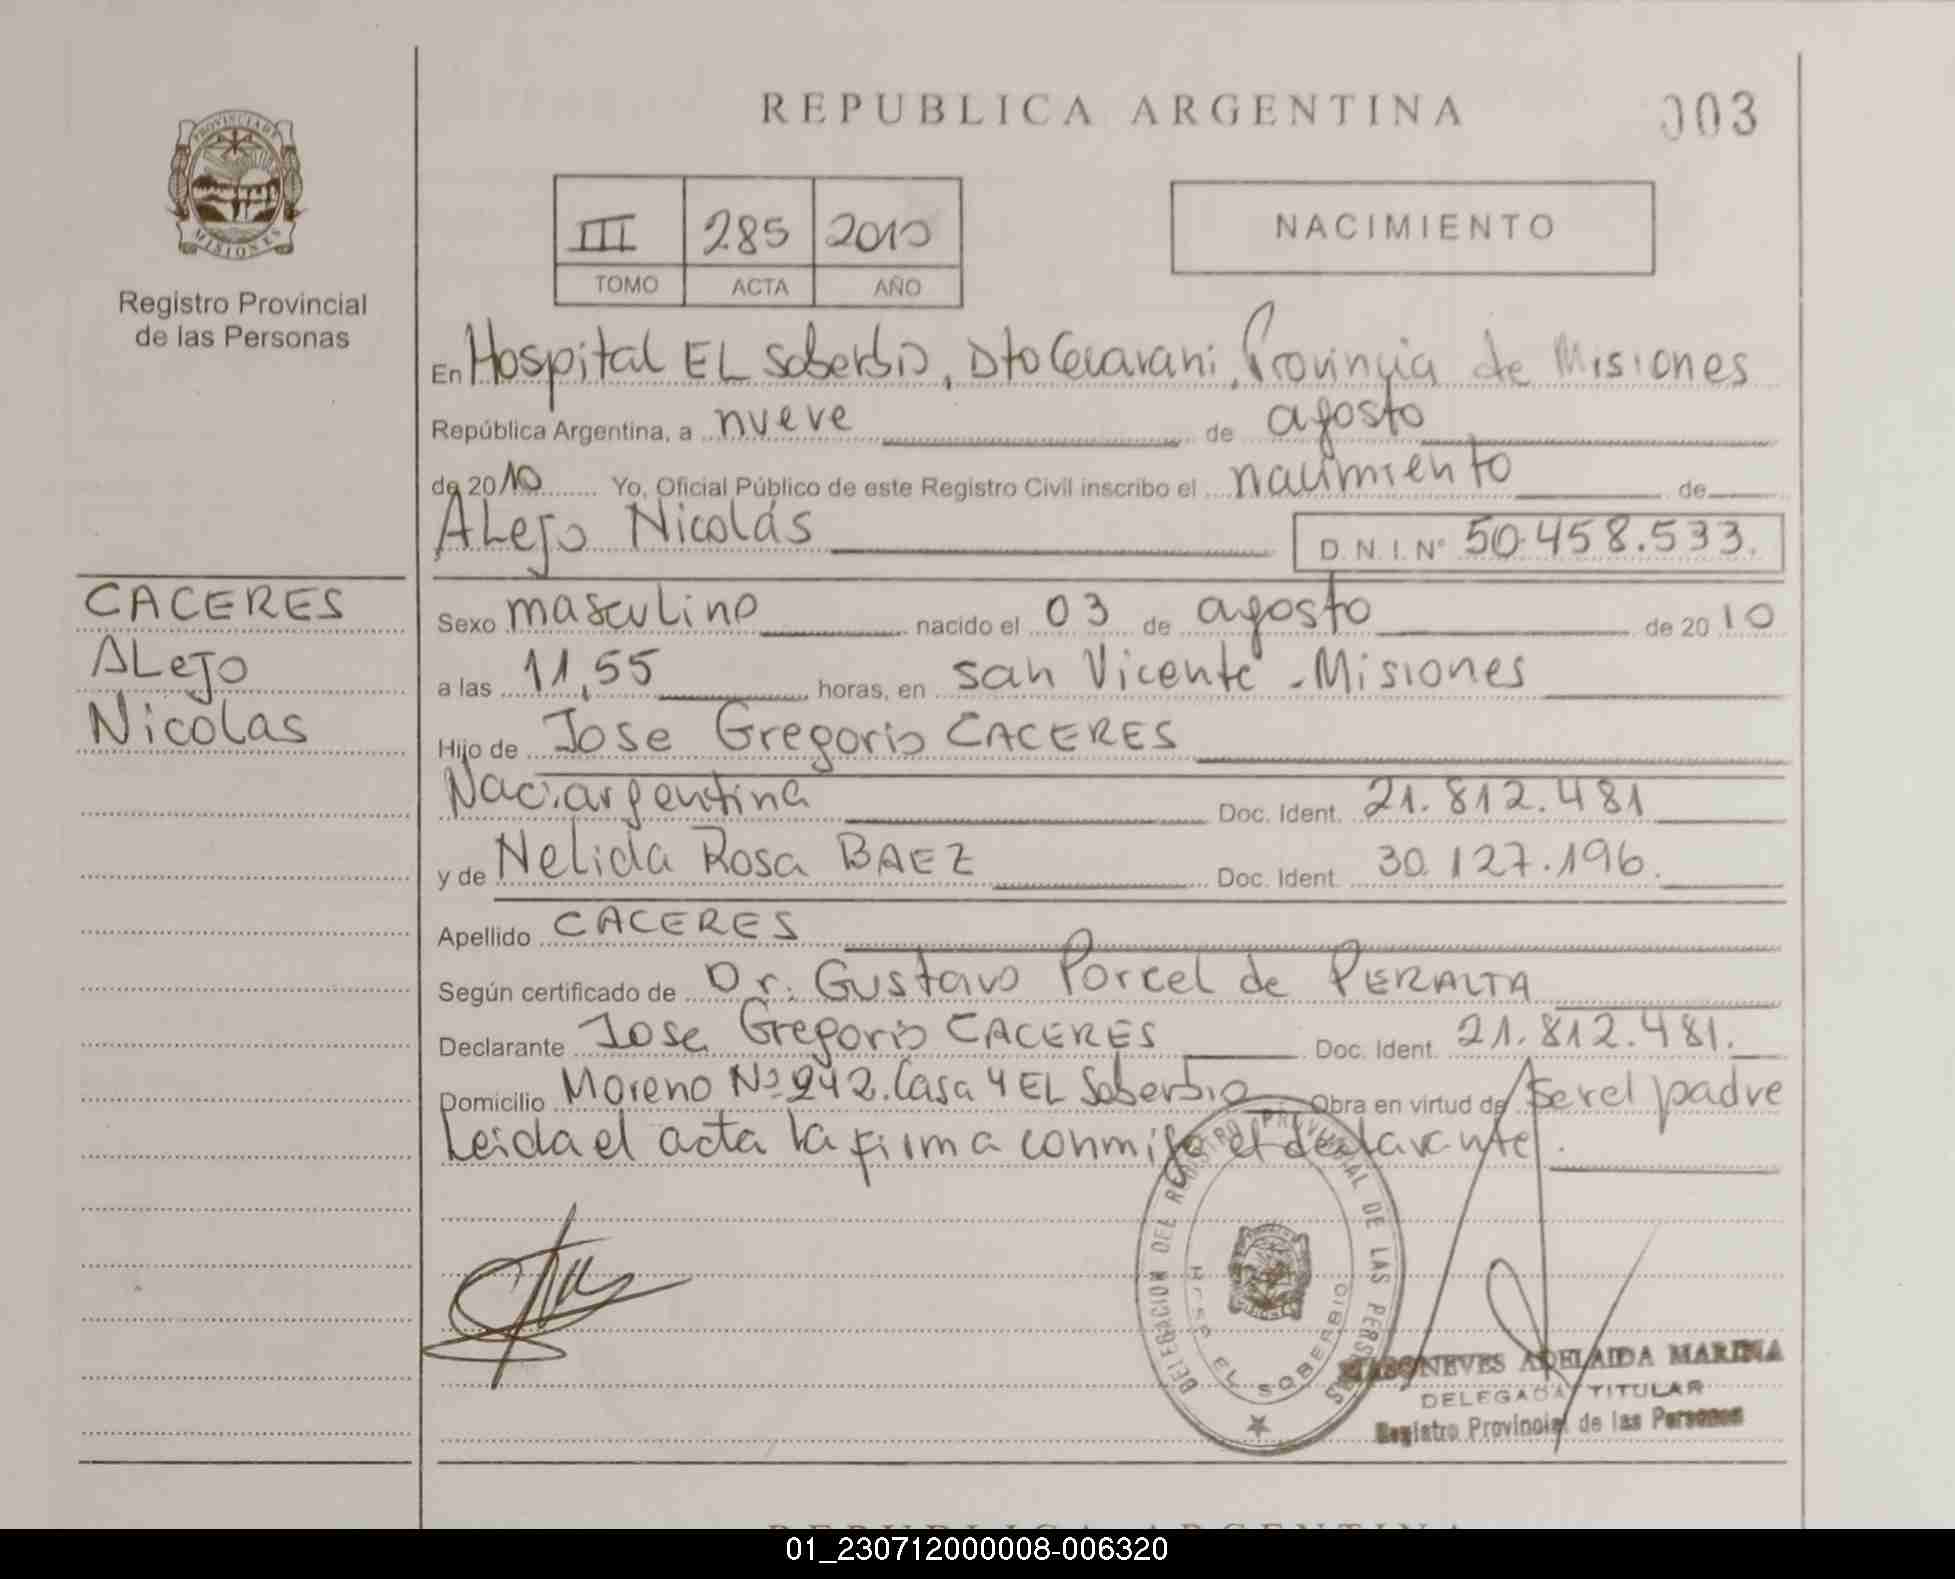 REPUBLICA ARGENTINA
003
PROVINCIA DE MISIONES
Registro Provincial
de las Personas
III 285 2010
TOMO ACTA AÑO
NACIMIENTO
En Hospital EL Soberbio, Dto Guarani, Provincia de Misiones
República Argentina, a nueve de agosto
de 2010 Yo, Oficial Público de este Registro Civil inscribo el nacimiento de
ALejo Nicolás D.N.I. Nº 50.458.533.
CACERES
ALejo
Nicolas
Sexo masculino nacido el 03 de agosto de 2010
a las 11,55 horas, en san Vicente - Misiones
Hijo de Jose Gregorio CACERES
Nac. argentina Doc. Ident. 21.812.481
y de Nelida Rosa BAEZ Doc. Ident. 30.127.196.
Apellido CACERES
Según certificado de Dr. Gustavo Porcel de PERALTA
Declarante Jose Gregorio CACERES Doc. Ident. 21.812.481.
Domicilio Moreno Nº 242. Casa 4 EL Soberbio Obra en virtud de Ser el padre
Leida el acta la firma conmigo el declarante.
DELEGACION DEL REGISTRO PROVINCIAL DE LAS PERSONAS
EL SOBERBIO
ADELAIDA MARINA
DELEGADA TITULAR
Registro Provincial de las Personas
REPUBLICA ARGENTINA
01_230712000008-006320